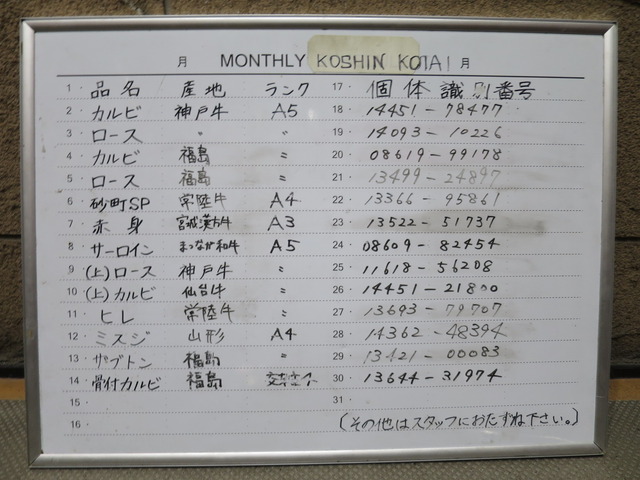 月 MONTHLY KOSHIN KOTAI 月
1 品名 産地 ランク 17 個体識別番号
2 カルビ 神戸牛 A5 18 14451-78477
3 ロース 〃 〃 19 14093-10226
4 カルビ 福島 〃 20 08619-99178
5 ロース 福島 〃 21 13499-24897
6 砂町SP 常陸牛 A4 22 13366-95861
7 赤身 宮城漢方牛 A3 23 13522-51737
8 サーロイン まつなが和牛 A5 24 08609-82454
9 (上)ロース 神戸牛 〃 25 11618-56208
10 (上)カルビ 仙台牛 〃 26 14451-21800
11 ヒレ 常陸牛 〃 27 13693-79707
12 ミスジ 山形 A4 28 14362-48394
13 ザブトン 福島 〃 29 13421-00083
14 骨付カルビ 福島 30 13644-31974
15 31
16 (その他はスタッフにおたずね下さい。)